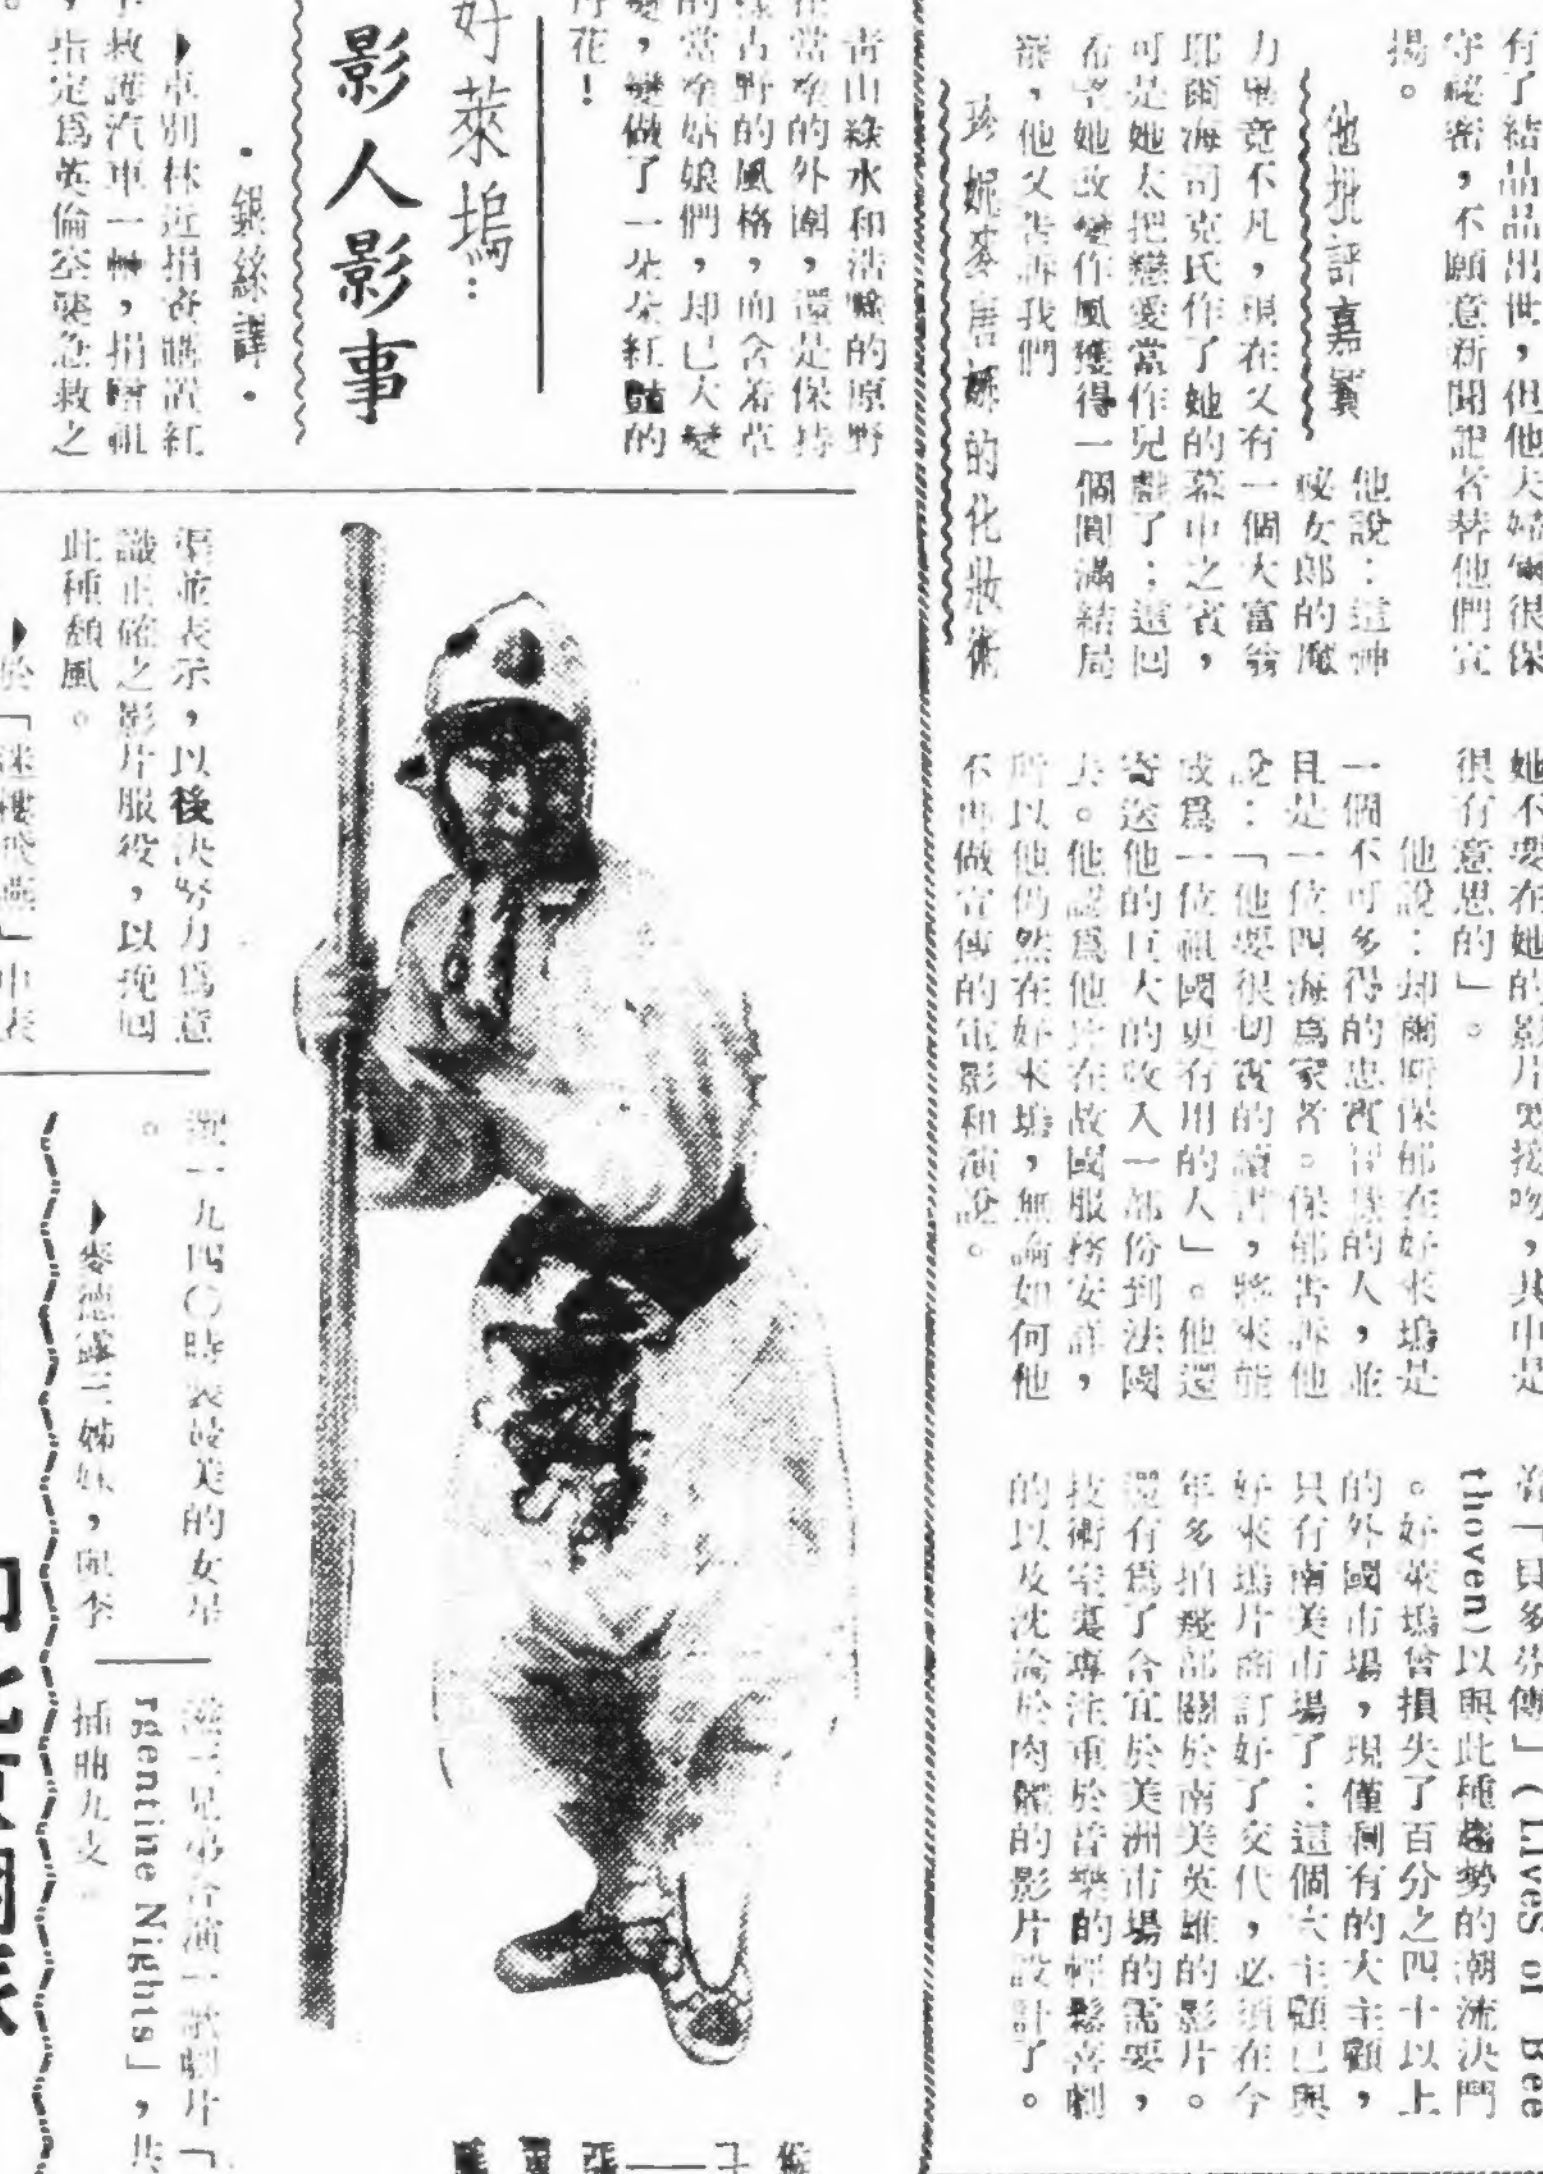 有了結晶品出世，但他夫婦倆很保
守祕密，不願意新聞記者替他們宣
揚。
他批評嘉寶
他說：這神
祕女郎的魔
力畢竟不凡，現在又有一個大富翁
耶爾海司克氏作了她的幕中之賓，
可是她太把戀愛當作兒戲了；這回
希望她改變作風獲得一個圓滿結局
罷，他又告訴我們
珍妮麥唐娜的化妝術
她不要在她的影片裏接吻，其中是
很有意思的」。
他說：却爾斯保郁在好來塢是
一個不可多得的忠實
的人，並
且是一位四海爲家者。保郁告訴他
說：「他要很切實的讀書，將來能
成爲一位祖國更有用的人」。他還
寄送他的巨大的收入一部份到法國
去。他認爲他
在故國服務安詳，
所以他仍然在好來塢，無論如何他
不再做宣傳的電影和演說。
着「貝多芬傳」(Lives of Bee
thoven)以與此種趨勢的潮流決鬥
。好萊塢曾損失了百分之四十以上
的外國市場，現僅剩有的大主顧，
只有南美市場了：這個大主顧已與
好來塢片商訂好了交代，必須在今
年多拍幾部關於南美英雄的影片。
還有爲了合宜於美洲市場的需要，
技術室裏專注重於音樂的輕鬆喜劇
的以及沈淪於肉體的影片設計了。
青山綠水和浩
的原野
在當塗的外圍，還是保持
古野的風格，而含着草
的當塗姑娘們，却已大變
變，變做了一朵朵紅豔的
花！
好萊塢：
影人影事
·銀絲譯·
卓別林近捐資購置紅
救護汽車一輛，捐贈祖
，指定爲英倫空襲急救之
。
並表示，以後決努力爲意
識正確之影片服役，以挽回
此種頹風。
於「迷樓
」中表
一九四〇時裝最美的女星
。
三姊妹，
李
兄弟合演十歌劇片「
rgentine Nights」，共
插曲九支。